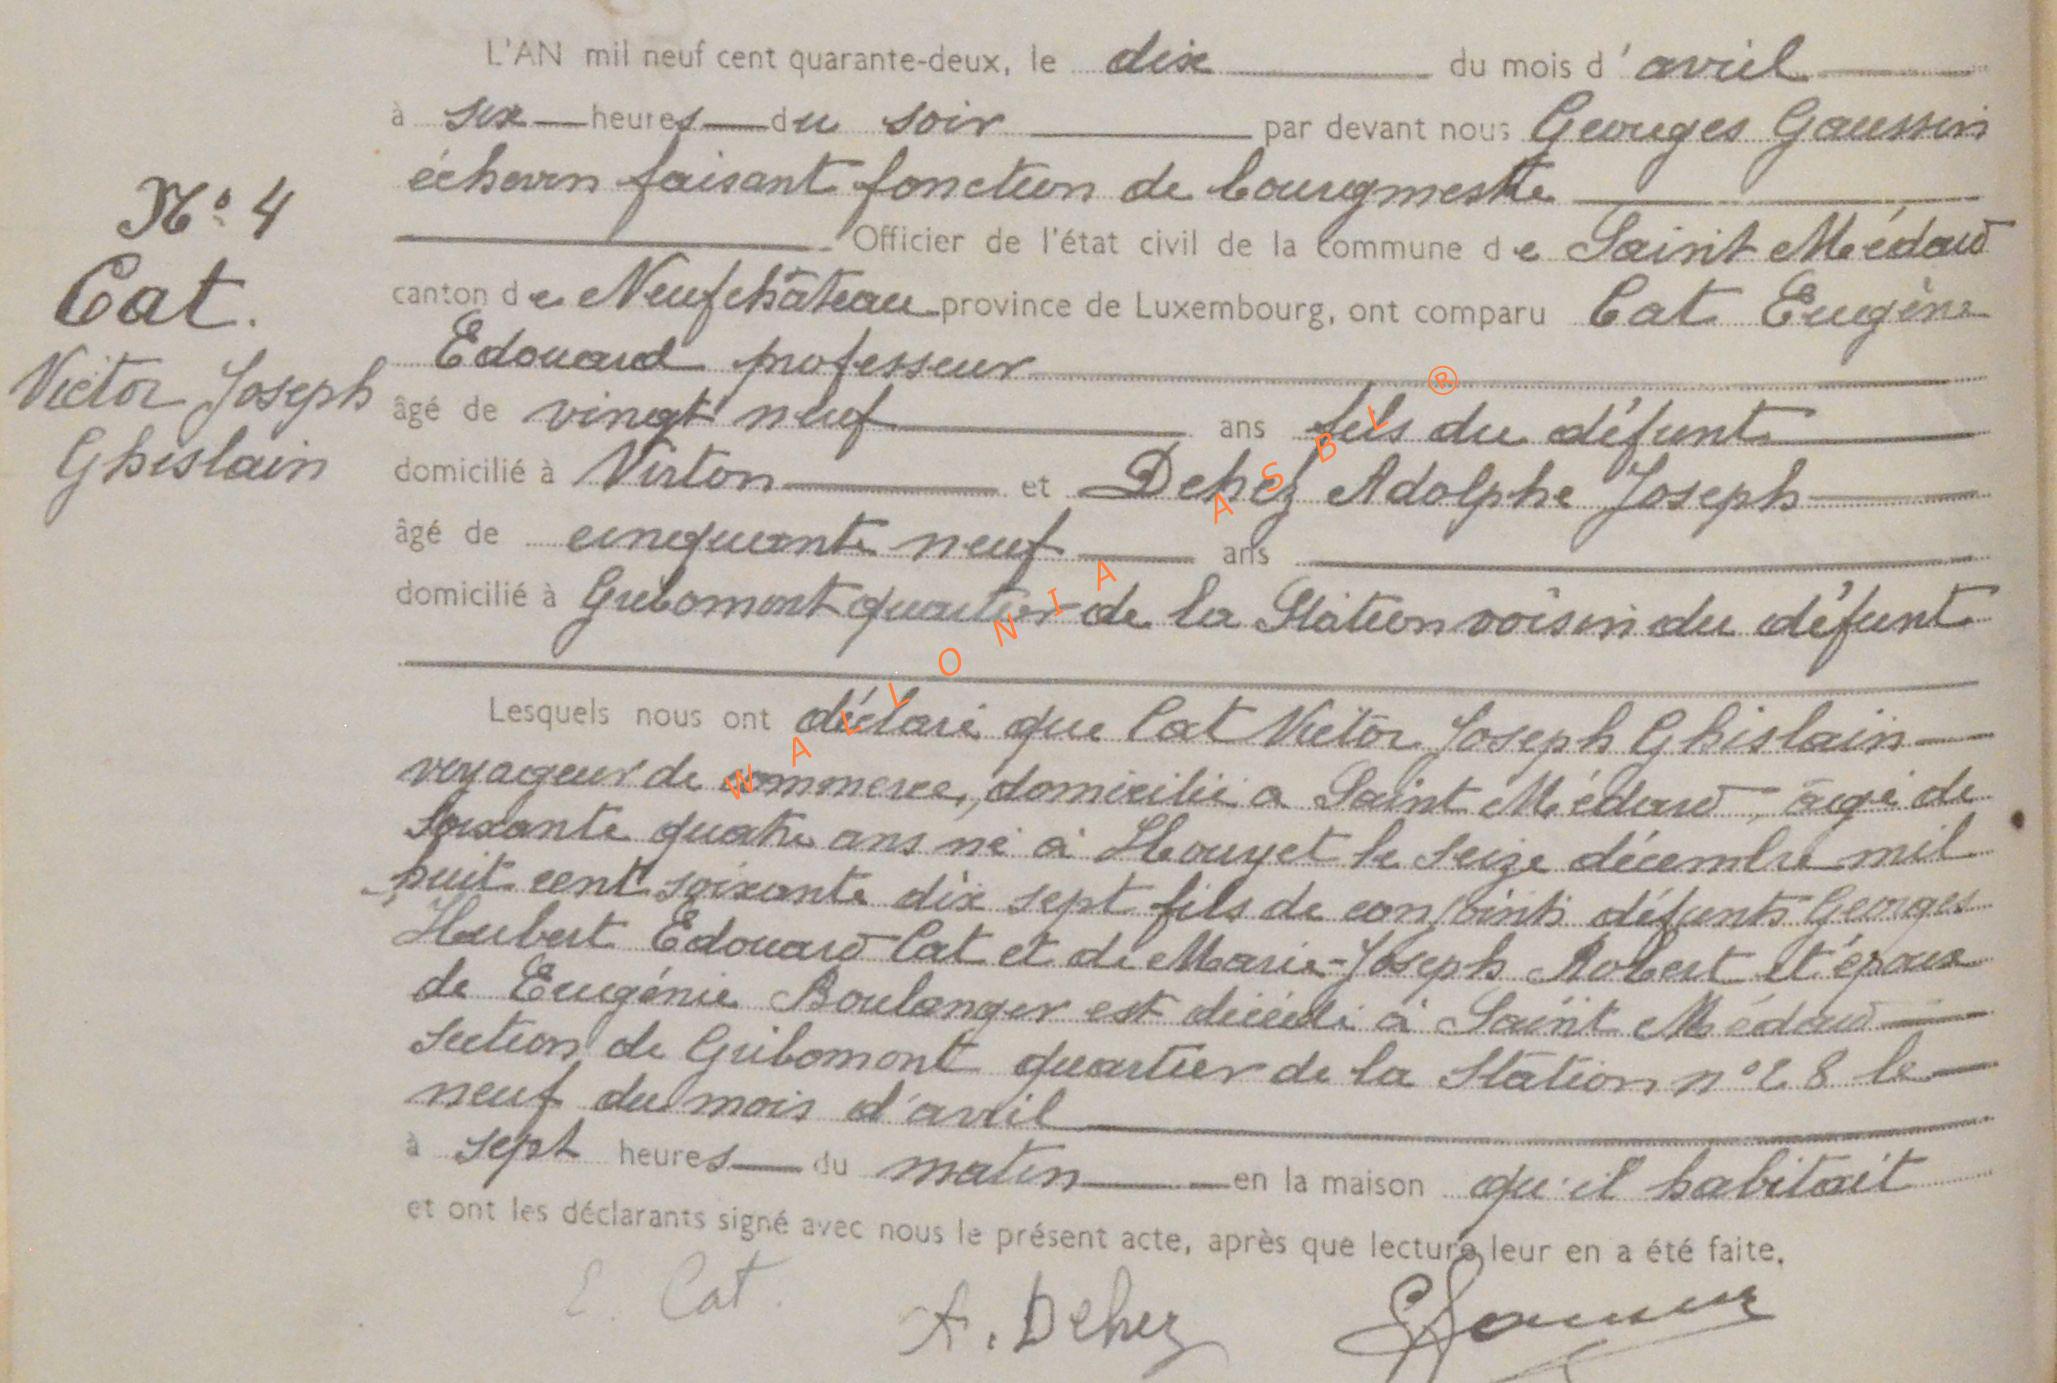 L'AN mil neuf cent quarante-deux, le dix du mois d'avril
à six heures du soir par devant nous Georges Gaussin
échevin faisant fonction de bourgmestre
N° 4
Officier de l'état civil de la commune de Saint Médard
Cat.
canton de Neufchâteau province de Luxembourg, ont comparu Cat Eugène
Edouard professeur
Victor Joseph
âgé de vingt neuf ans fils du défunt
Ghislain
domicilié à Virton et Dehez Adolphe Joseph
âgé de cinquante neuf ans
domicilié à Gribomont quartier de la Station voisin du défunt
Lesquels nous ont déclaré que Cat Victor Joseph Ghislain
voyageur de commerce, domicilié a Saint Médard, âgé de
soixante quatre ans né à Houyet le seize décembre mil
huit cent soixante dix sept fils de conjoints défunts Georges
Hubert Edouard Cat et de Marie-Joseph Robert et époux
de Eugénie Boulanger est décédé à Saint Médard
section de Gribomont quartier de la Station n° 28 le
neuf du mois d'avril
à sept heures du matin en la maison qu'il habitait
et ont les déclarants signé avec nous le présent acte, après que lecture leur en a été faite.
E. Cat.
A. Dehez
WALLONIA ASBL ®